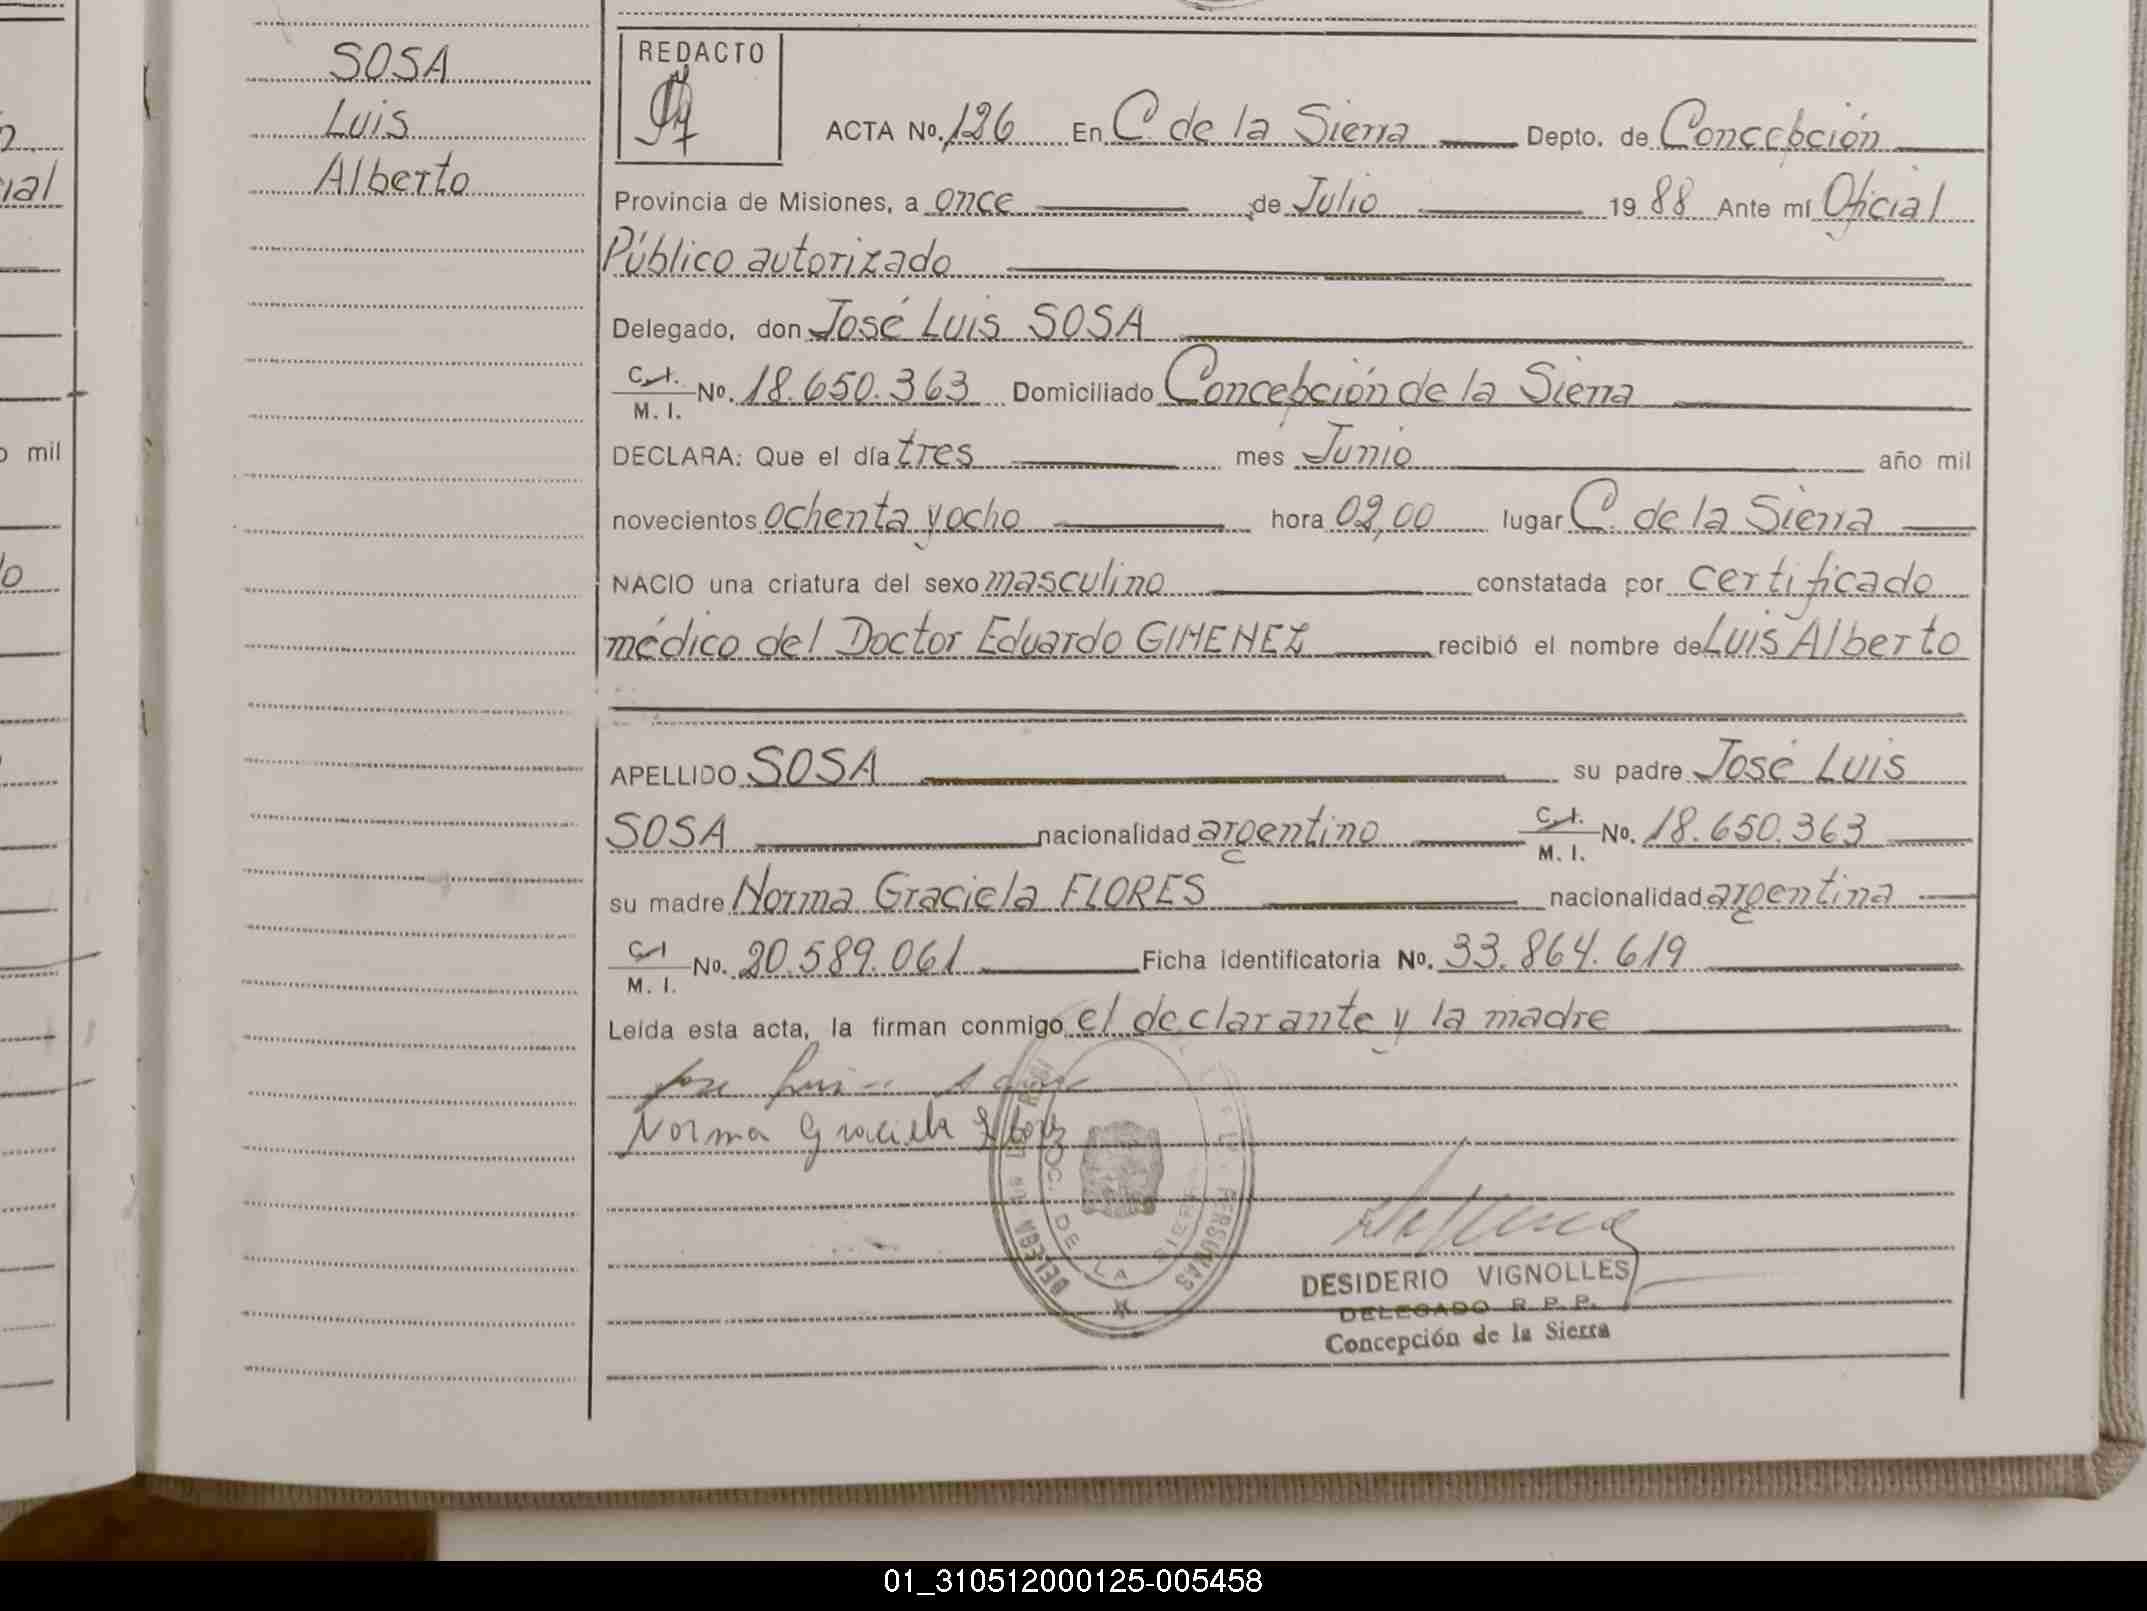 SOSA
Luis
Alberto
ial
o mil
lo
REDACTO
ACTA No. 126 En C. de la Sierra Depto. de Concepción
Provincia de Misiones, a once de Julio 19 88 Ante mí Oficial
Público autorizado
Delegado, don José Luis SOSA
C.I. M. I. No. 18.650.363 Domiciliado Concepción de la Sierra
DECLARA: Que el día tres mes Junio año mil
novecientos ochenta y ocho hora 02,00 lugar C. de la Sierra
NACIO una criatura del sexo masculino constatada por certificado
médico del Doctor Eduardo GIMENEZ recibió el nombre de Luis Alberto
APELLIDO SOSA su padre José Luis
SOSA nacionalidad argentino C.I. M. I. No. 18.650.363
su madre Norma Graciela FLORES nacionalidad argentina
C.I. M. I. No. 20.589.061 Ficha identificatoria No. 33.864.619
Leída esta acta, la firman conmigo el declarante y la madre
Jose Luis Sosa
Norma Graciela Flores
DE LA SIERRA
PERSONAS
DESIDERIO VIGNOLLES
DELEGADO R. P. P.
Concepción de la Sierra
01_310512000125-005458